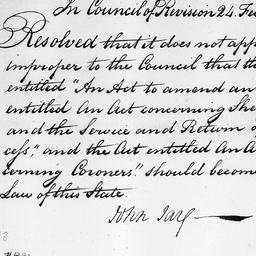 In Council of Revision 24. Fe
Resolved that it does not app
improper to the Council that th
entitled "An Act to amend an
entitled An Act concerning She
and the Service and Return o
cess," and the Act entitled An A
cerning Coroners," should becom
Law of this State.
John Jay